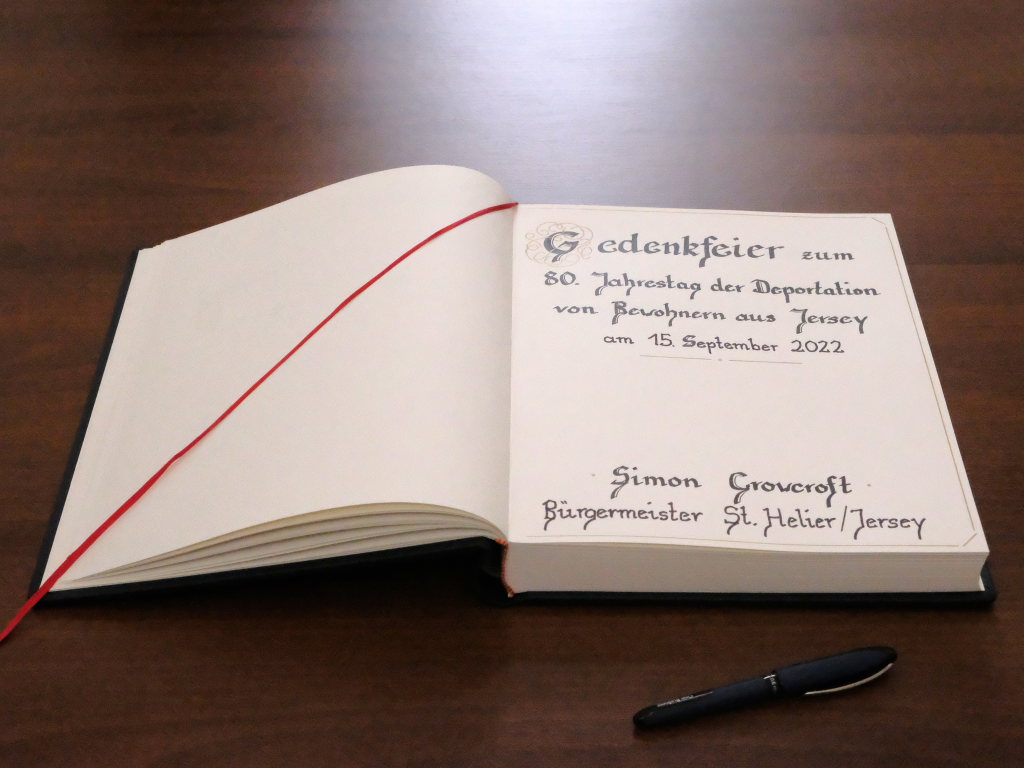 Gedenkfeier zum
80. Jahrestag der Deportation
von Bewohnern aus Jersey
am 15. September 2022
Simon Crowcroft
Bürgermeister St. Helier/Jersey